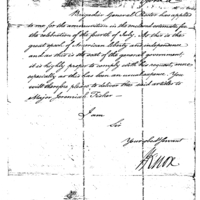 Brigadier General         has applied
to me for the ammunition in the        
the celebration of the fourth of July. As this is the
great epoch of American liberty and independence
and as this is the seat of the general government,
it is highly proper to comply with the request more
especially as this has been an usual expence. You
will therefore please to deliver the said articles to
Major Jeremiah Fisher
I am
Sir
Your obedt Servant
HKnox